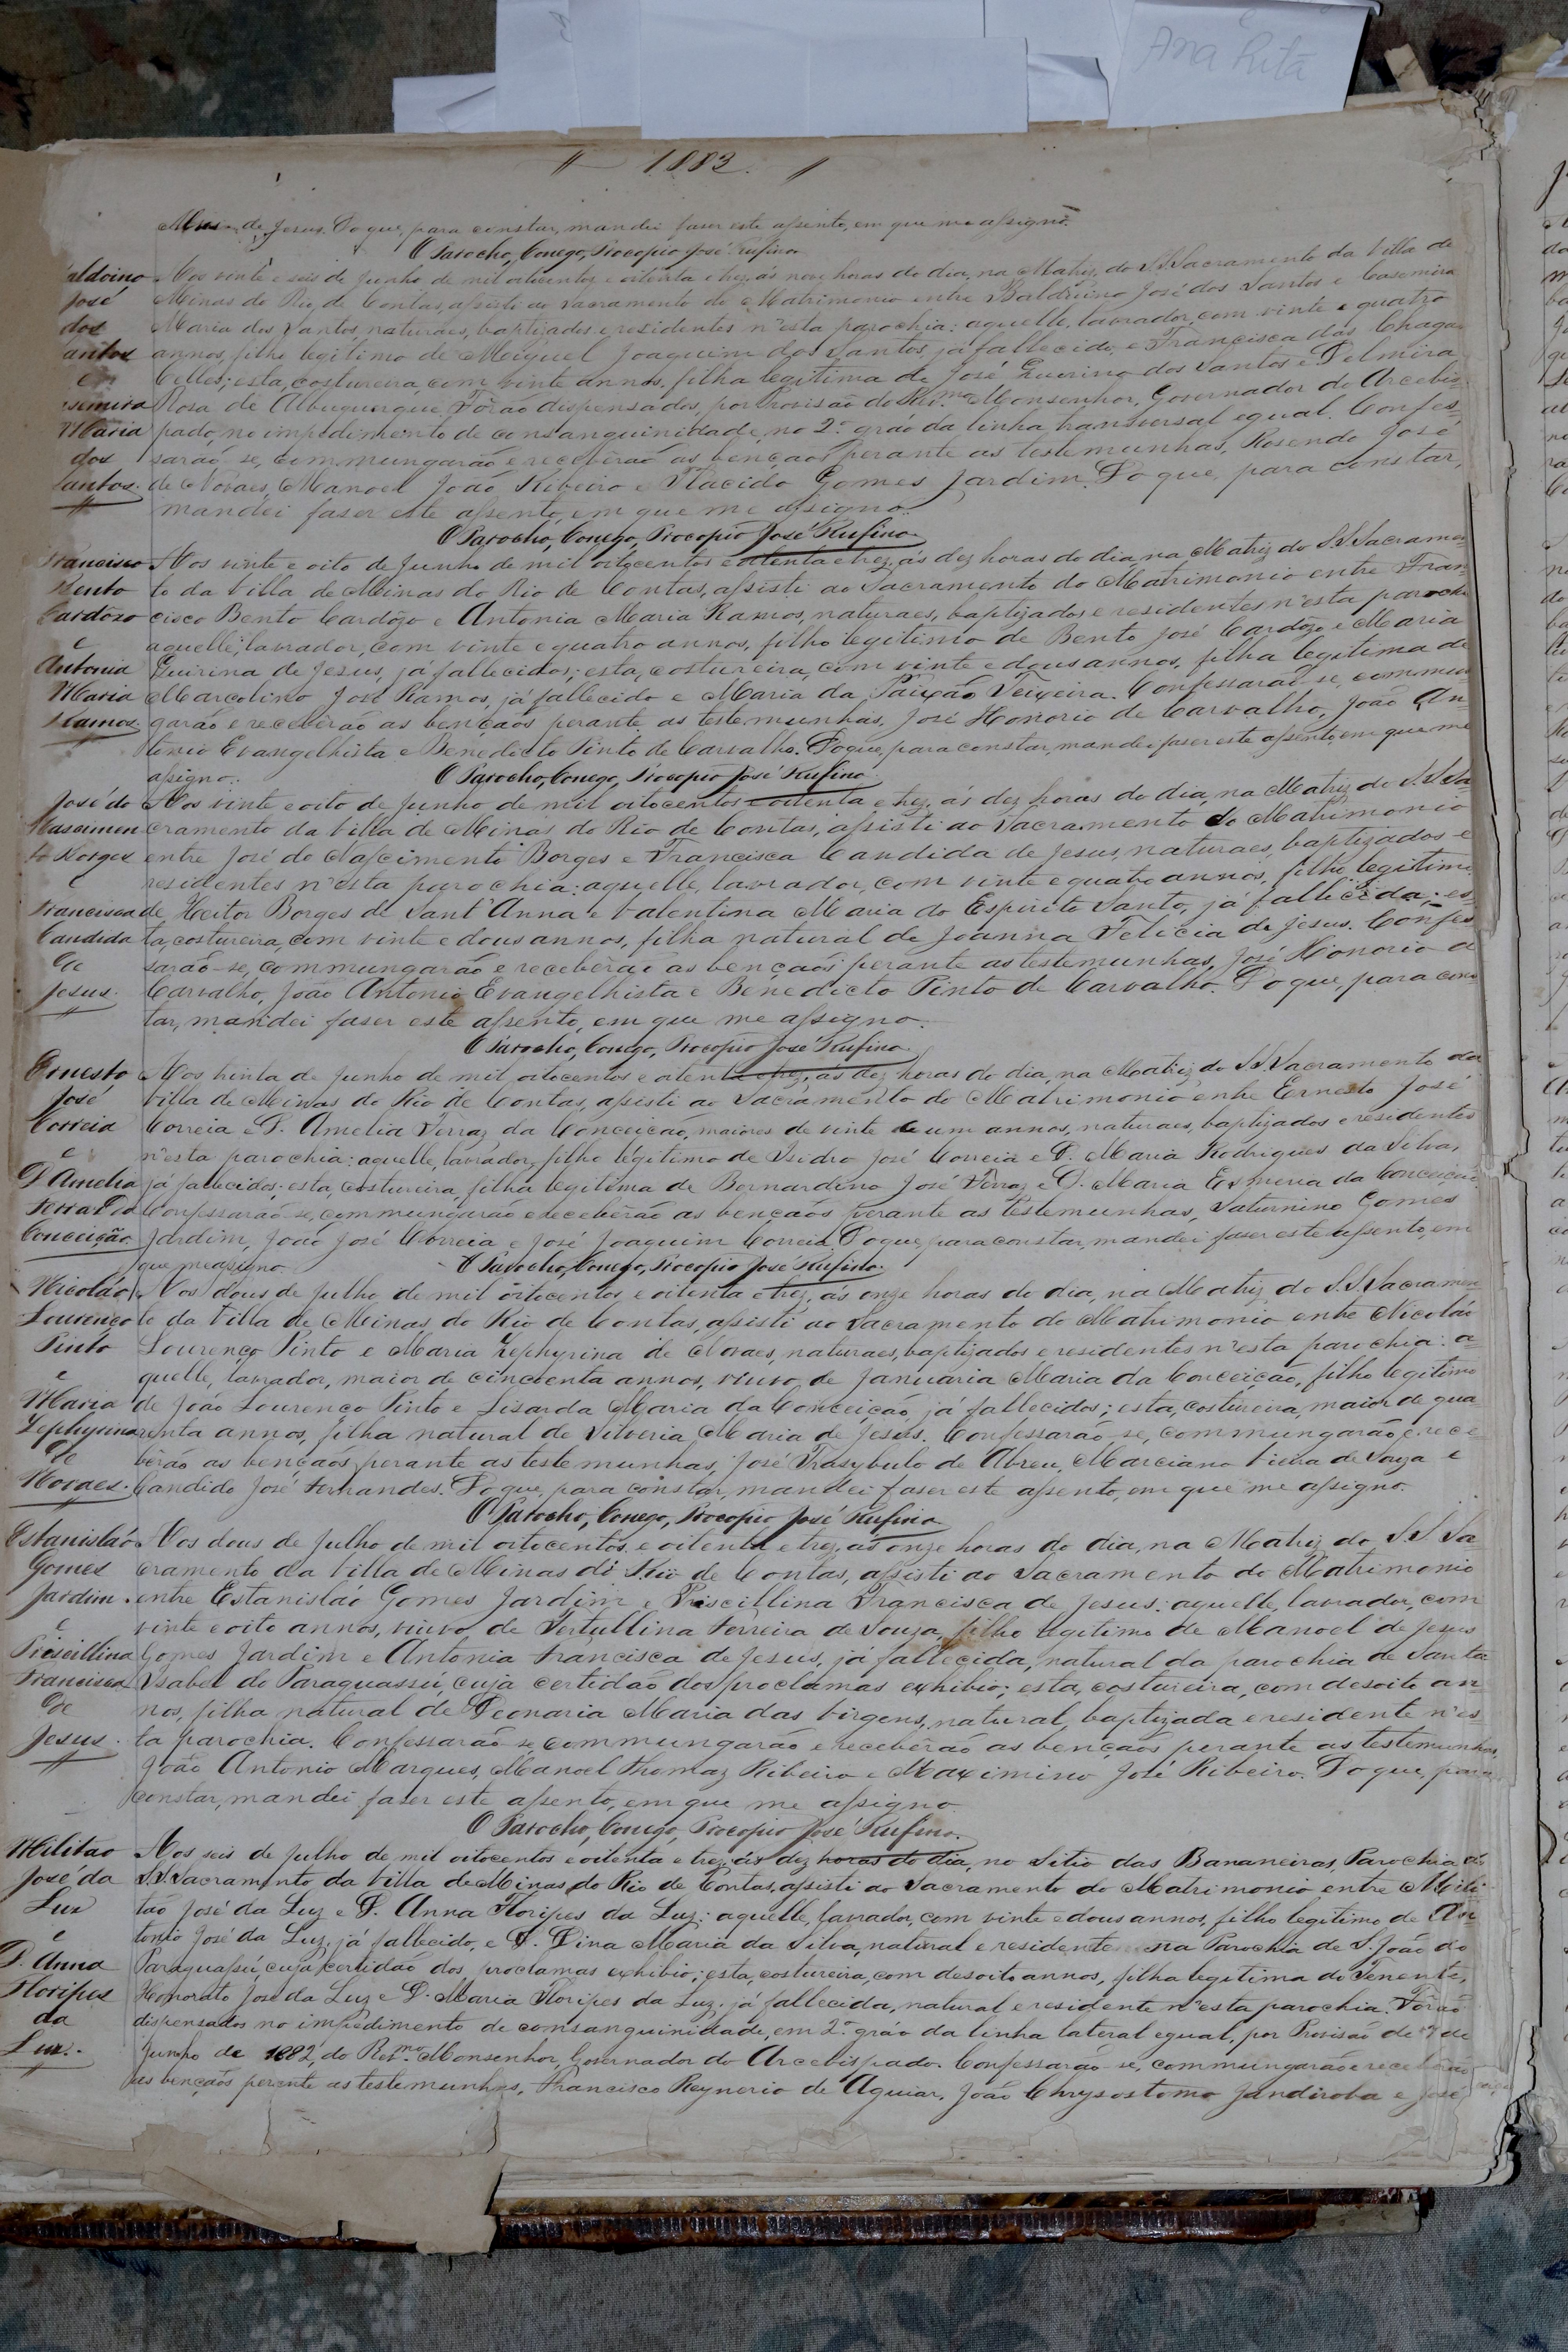 Ana Rita
1883.
Maria de Jesus. Do que, para constar, mandei faser este assento, em que me assigno.
O Parocho, Conego, Procopio José Rufino
aldoino
José
dos
antos
e
semira
Maria
dos
Santos.
Aos vinte e seis de Junho de mil oitocentos e oitenta e trez, ás nove horas do dia, na Matriz do S.S. Sacramento da Villa de
Minas do Rio de Contas, assisti ao Sacramento do Matrimonio entre Balduino José dos Santos e Casemira
Maria dos Santos, naturaes, baptizados e residentes n'esta parochia: aquelle, lavrador, com vinte e quatro
annos, filho legitimo de Miguel Joaquim dos Santos, já fallecido, e Francisca das Chagas
Telles; esta, costureira, com vinte annos, filha legitima de José Guerino dos Santos e Delmira
Rosa de Albuquerque. Fôrão dispensados, por Provisão do Rv.mo Monsenhor, Governador do Arcebis-
pado, no impedimento de consanguinidade, no 2º gráo da linha transversal egual. Confes-
sarão-se, commungarão e recebêrão as bençãos perante as testemunhas, Rosendo José
de Novaes, Manoel João Ribeiro e Placido Gomes Jardim. Do que, para constar,
mandei faser este assento, em que me assigno.
O Parocho, Conego, Procopio José Rufino.
Francisco
Bento
Cardozo
e
Antonia
Maria
Ramos
Aos vinte e oito de Junho de mil oitocentos e oitenta e trez, ás dez horas do dia, na Matriz do S.S. Sacramen-
to da Villa de Minas do Rio de Contas, assisti ao Sacramento do Matrimonio entre Fran-
cisco Bento Cardozo e Antonia Maria Ramos, naturaes, baptizados e residentes n'esta parochi
aquelle, lavrador, com vinte e quatro annos, filho legitimo de Bento José Cardozo e Maria
Quirina de Jesus, já fallecidos; esta, costureira, com vinte e dous annos, filha legitima de
Marcolino José Ramos, já fallecido e Maria da Paixão Teixeira. Confessarão-se, commun
garão e recebêrão as bençãos perante as testemunhas, José Honorio de Carvalho, João An-
tonio Evangelhista e Benedicto Pinto de Carvalho. Do que, para constar, mandei faser este assento, em que me
assigno.
O Parocho, Conego, Procopio José Rufino
José do
Nascimen
to Borges
e
Francisca
Candida
de
Jesus.
Aos vinte e oito de Junho de mil oitocentos e oitenta e trez, ás dez horas do dia, na Matriz do S.S. Sa-
cramento da Villa de Minas do Rio de Contas, assisti ao Sacramento do Matrimonio
entre José do Nascimento Borges e Francisca Candida de Jesus, naturaes, baptizados e
residentes n'esta parochia: aquelle, lavrador, com vinte e quatro annos, filho legitimo
de Heitor Borges de Sant'Anna e Valentina Maria do Espirito Santo, já fallecida; es-
ta, costureira, com vinte e dous annos, filha natural de Joanna Felicia de Jesus. Confes
sarão-se, commungarão e recebêrão as bençãos perante as testemunhas, José Honorio de
Carvalho, João Antonio Evangelhista e Benedicto Pinto de Carvalho. Do que, para cons-
tar, mandei faser este assento, em que me assigno.
O Parocho, Conego, Procopio José Rufino.
Ernesto
José
Correia
e
D. Amelia
Ferraz da
Conceição
Aos trinta de Junho de mil oitocentos e oitenta e trez, ás dez horas do dia, na Matriz do S.S. Sacramento da
Villa de Minas do Rio de Contas, assisti ao Sacramento do Matrimonio entre Ernesto José
Correia e D. Amelia Ferraz da Conceição, maiores de vinte e um annos, naturaes, baptizados e residentes
n'esta parochia: aquelle, lavrador, filho legitimo de Isidro José Correia e D. Maria Rodrigues da Silva,
já fallecidos; esta, costureira, filha legitima de Bernardino José Ferraz e D. Maria Esmeria da Conceição.
Confessarão-se, commungarão e recebêrão as bençãos perante as testemunhas, Saturnino Gomes
Jardim, João José Correia e José Joaquim Correia. Do que, para constar, mandei faser este assento, em
que me assigno.
O Parocho, Conego, Procopio José Rufino.
Nicoláo
Lourenço
Pinto
e
Maria
Zephyrina
de
Novaes.
Aos dous de Julho de mil oitocentos e oitenta e trez, ás onze horas do dia, na Matriz do S.S. Sacramen-
to da Villa de Minas do Rio de Contas, assisti ao Sacramento do Matrimonio entre Nicoláo
Lourenço Pinto e Maria Zephyrina de Novaes, naturaes, baptizados e residentes n'esta parochia: a-
quelle, lavrador, maior de cincoenta annos, viuvo de Januaria Maria da Conceição, filho legitimo
de João Lourenço Pinto e Lisarda Maria da Conceição, já fallecidos; esta, costureira, maior de qua-
renta annos, filha natural de Silveria Maria de Jesus. Confessarão-se, commungarão e rece-
bêrão as bençãos perante as testemunhas, José Trasybulo de Abreu, Marciano Vieira de Souza e
Candido José Fernandes. Do que, para constar, mandei faser este assento, em que me assigno.
O Parocho, Conego, Procopio José Rufino
Estanisláo
Gomes
Jardim.
e
Priscillina
Francisca
de
Jesus.
Aos dous de Julho de mil oitocentos e oitenta e trez, ás onze horas do dia, na Matriz do S.S. Sa-
cramento da Villa de Minas do Rio de Contas, assisti ao Sacramento do Matrimonio
entre Estanisláo Gomes Jardim e Priscillina Francisca de Jesus: aquelle, lavrador, com
vinte e oito annos, viuvo de Tertullina Ferreira de Souza, filho legitimo de Manoel de Jesus
Gomes Jardim e Antonia Francisca de Jesus, já fallecida, natural da parochia de Santa
Ysabel do Paraguassú, cuja certidão dos proclamas exhibio; esta, costureira, com desoito an-
nos, filha natural de Leonaria Maria das Virgens, natural, baptizada e residente n'es-
ta parochia. Confessarão-se, commungarão e recebêrão as bençãos perante as testemunhas,
João Antonio Marques, Manoel Thomaz Ribeiro e Maximino José Ribeiro. Do que, para
constar, mandei faser este assento, em que me assigno
O Parocho, Conego, Procopio José Rufino.
Militão
José da
Luz
e
D. Anna
Floripes
da
Luz.
Aos seis de Julho de mil oitocentos e oitenta e trez, ás dez horas do dia, no Sitio das Bananeiras, Parochia do
S.S. Sacramento da Villa de Minas do Rio de Contas, assisti ao Sacramento do Matrimonio entre Mili-
tão José da Luz e D. Anna Floripes da Luz: aquelle, lavrador, com vinte e dous annos, filho legitimo de An
tonio José da Luz, já fallecido, e D. Dina Maria da Silva, natural e residente na Parochia de S. João do
Paraguassú, cuja certidão dos proclamas exhibio; esta, costureira, com desoito annos, filha legitima do Tenente,
Honorato José da Luz e D. Maria Floripes da Luz, já fallecida, natural e residente n'esta parochia. Fôrão
dispensados no impedimento de consanguinidade, em 2º gráo da linha lateral egual, por Provisão de 7 de
Junho de 1882, do Rev.mo Monsenhor, Governador do Arcebispado. Confessarão-se, commungarão e recebêrão
as bençãos perante as testemunhas, Francisco Reynerio de Aguiar, João Chrysostomo Jandiroba e José